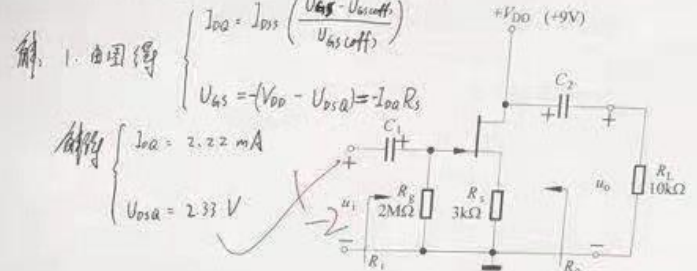 解: 1. 由图得
I_DQ = I_DSS ( U_GS - U_GS(off) / U_GS(off) )
U_GS = -(V_DD - U_DSQ) = -I_DQ R_S
解得
I_DQ = 2.22 mA
U_DSQ = 2.33 V
-2
+V_DD (+9V)
C_2
+
+
C_1
+
+
u_i
R_g
2MΩ
R_s
3kΩ
u_o
R_L
10kΩ
−
−
R_i